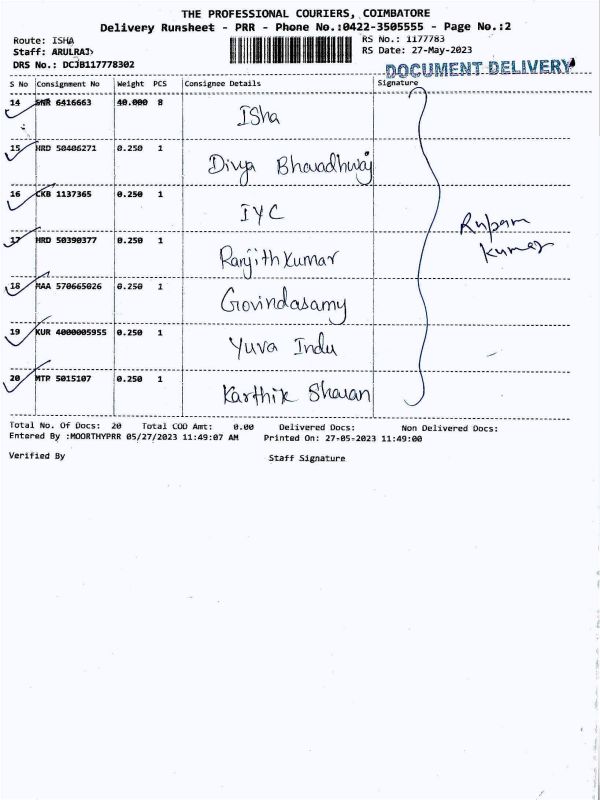 THE PROFESSIONAL COURIERS, COIMBATORE
Delivery Runsheet - PRR - Phone No.:0422-3505555 - Page No.:2
Route: ISHA RS No.: 1177783
Staff: ARULRAJ RS Date: 27-May-2023
DRS No.: DCJB117778302 DOCUMENT DELIVERY
S No Consignment No Weight PCS Consignee Details Signature
14 SNR 6416663 40.000 8 ISha
15 HRD 50406271 0.250 1 Divya Bhavadhwaj
16 CKB 1137365 0.250 1 IYC
17 HRD 50390377 0.250 1 Ranjith Kumar
18 MAA 570665026 0.250 1 Govindasamy
19 KUR 4000005955 0.250 1 Yuva Indu
20 MTP 5015107 0.250 1 Karthik Sharan
Rupam
Kumar
Total No. Of Docs: 20 Total COD Amt: 0.00 Delivered Docs: Non Delivered Docs:
Entered By :MOORTHYPRR 05/27/2023 11:49:07 AM Printed On: 27-05-2023 11:49:00
Verified By Staff Signature